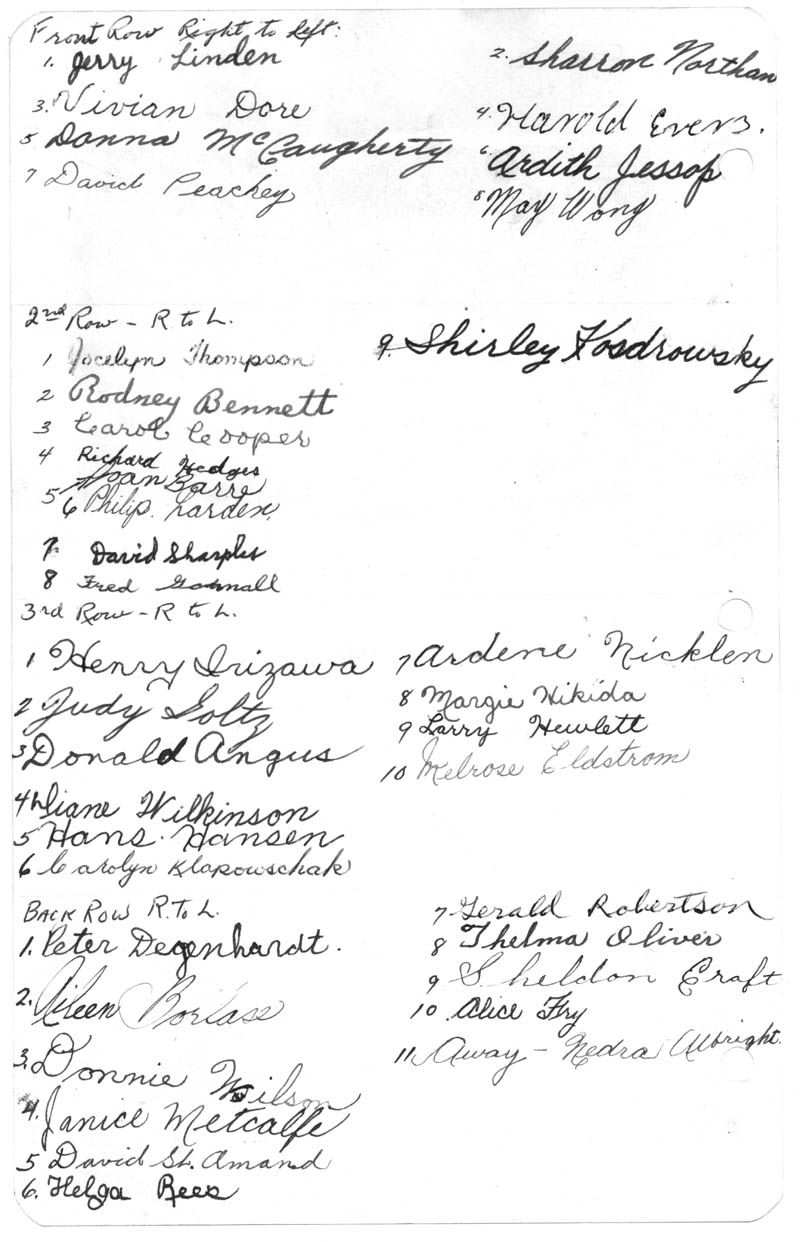 Front Row Right to Left:
1. Jerry Linden
2. Sharron Northan
3. Vivian Dore
4. Harold Evers.
5 Donna McCaugherty
6 Ardith Jessop
7 David Peachey
8 May Wong
2nd Row - R to L.
1 Jocelyn Thompson
2 Rodney Bennett
3 Carol Cooper
4 Richard Hedges
5 Joan Barre
6 Philip Larden
7. David Sharples
8 Fred
9. Shirley Kosdrowsky
3rd Row - R to L.
1 Henry Irizawa
2 Judy Goltz
3 Donald Angus
4 Diane Wilkinson
5 Hans Hansen
6 Carolyn Klapowschak
7 Ardene Nicklen
8 Margie Hikida
9 Larry Hewlett
10 Melrose Eldstrom
Back Row R. To L.
1. Peter Degenhardt.
2. Aileen Borlase
3. Donnie Wilson
4. Janice Metcalfe
5 David St. Amand
6. Helga Rees
7 Gerald Robertson
8 Thelma Oliver
9 Sheldon Craft
10 Alice Fry
11 Away - Nedra Albright.